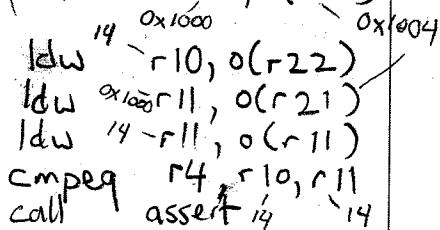 0x1000 0x1004
14
ldw r10, 0(r22)
ldw 0x1000 r11, 0(r21)
ldw 14 r11, 0(r11)
cmpeq r4, r10, r11
call assert 14 14